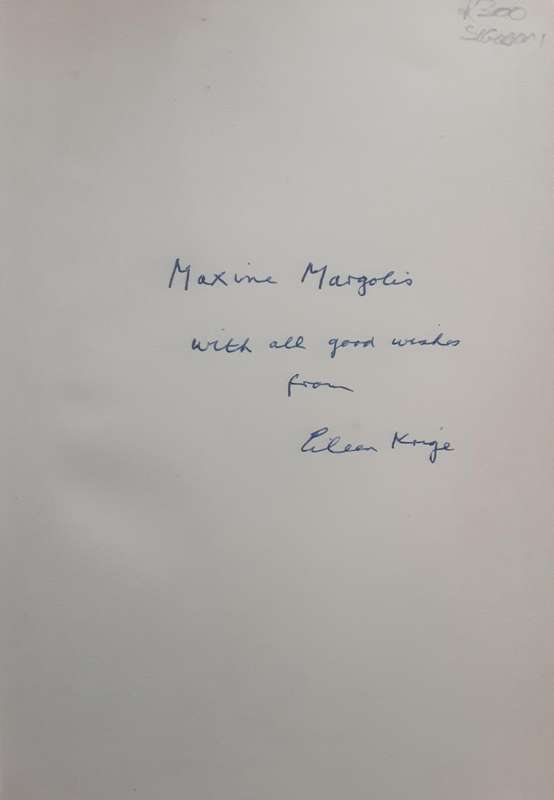 $300
Maxine Margolis
with all good wishes
from
Eileen Krige